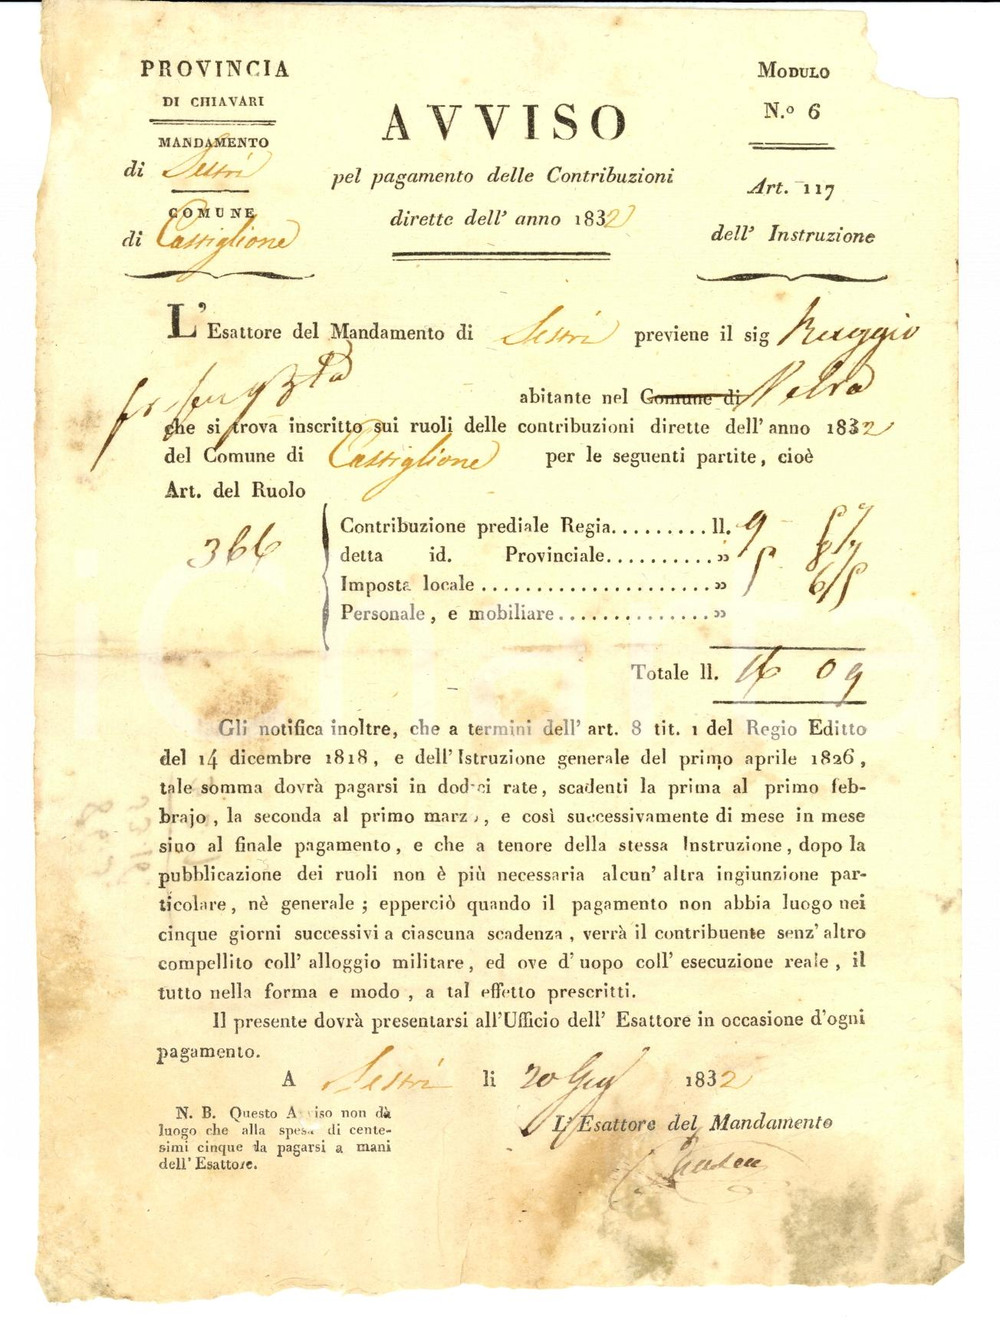 PROVINCIA
DI CHIAVARI
MANDAMENTO
di Sestri
COMUNE
di Castiglione
AVVISO
pel pagamento delle Contribuzioni
dirette dell' anno 1832
MODULO
N.º 6
Art. 117
dell' Instruzione
L'Esattore del Mandamento di Sestri previene il sig
abitante nel Comune di
che si trova inscritto sui ruoli delle contribuzioni dirette dell' anno 1832
del Comune di Castiglione per le seguenti partite, cioè
Art. del Ruolo
366
Contribuzione prediale Regia.........ll. 9
detta id. Provinciale..........»
Imposta locale......................»
Personale, e mobiliare..............»
Totale ll. 16 09
Gli notifica inoltre, che a termini dell' art. 8 tit. 1 del Regio Editto
del 14 dicembre 1818, e dell'Istruzione generale del primo aprile 1826,
tale somma dovrà pagarsi in dodici rate, scadenti la prima al primo feb-
brajo, la seconda al primo marzo, e così successivamente di mese in mese
sino al finale pagamento, e che a tenore della stessa Instruzione, dopo la
pubblicazione dei ruoli non è più necessaria alcun' altra ingiunzione par-
ticolare, nè generale; epperciò quando il pagamento non abbia luogo nei
cinque giorni successivi a ciascuna scadenza, verrà il contribuente senz' altro
compellito coll' alloggio militare, ed ove d' uopo coll' esecuzione reale, il
tutto nella forma e modo, a tal effetto prescritti.
Il presente dovrà presentarsi all'Ufficio dell' Esattore in occasione d'ogni
pagamento.
A Sestri li 20 1832
N. B. Questo Avviso non dà
luogo che alla spesa di cente-
simi cinque da pagarsi a mani
dell' Esattore.
L'Esattore del Mandamento